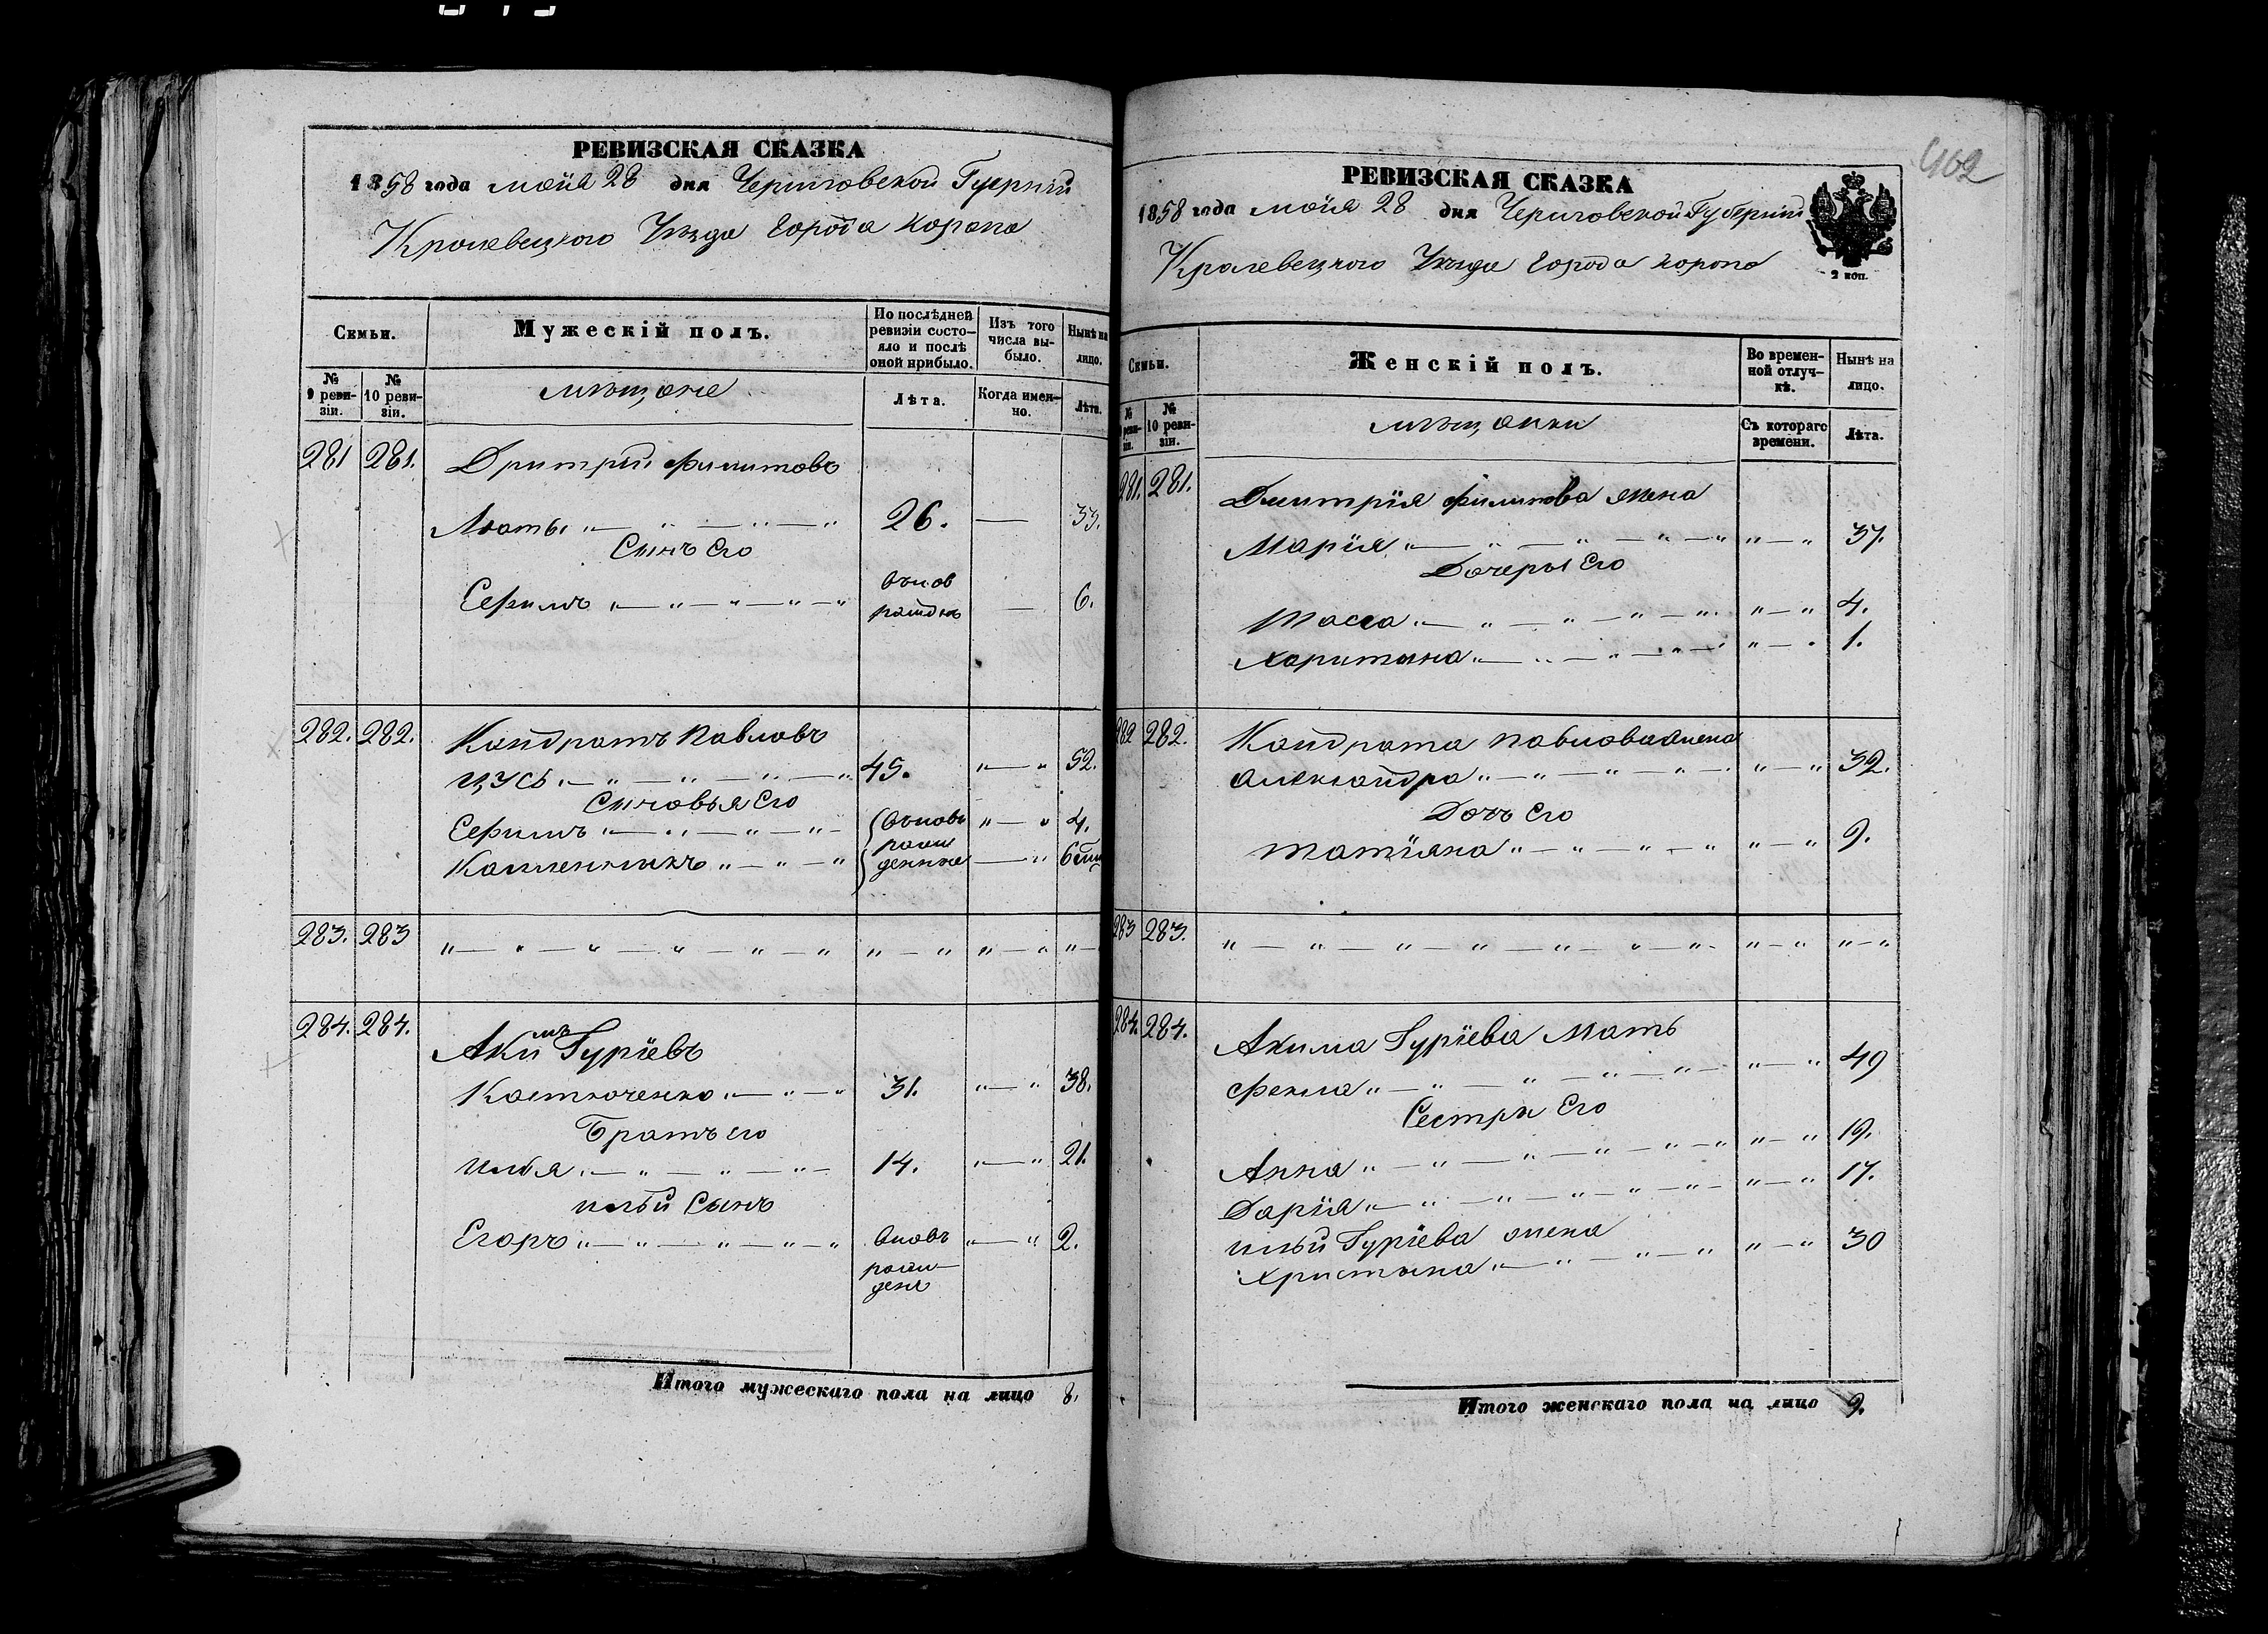 462
РЕВИЗСКАЯ СКАЗКА
1858 года мая 28 дня Черниговской Губерніи
Кролевецкого Уезда города Коропа
Семьи.
Мужескій полъ.
По послѣдней ревизіи состояло и послѣ оной прибыло.
Изъ того числа выбыло.
Нынѣ на лицо.
№ 9 ревизіи.
№ 10 ревизіи.
мещане
Лѣта.
Когда именно.
Лѣта.
281 281. Дмитрий Филитовъ
26. — 33.
Сынъ Его
Ефимъ вновь рожденъ — 6.
282. 282. Кондратъ Павловъ
Цусь 45. 52.
Сыновья Его
Ефимъ вновь рожденные 4.
283. 283
284. 284. Акимъ Гуріевъ
Костюченко 31. 38.
Братъ его
Илья 14. 21.
Ильи Сынъ
Егоръ вновь рожденъ 2.
Итого мужескаго пола на лицо 8.
РЕВИЗСКАЯ СКАЗКА
1858 года мая 28 дня Черниговской Губерніи
Кролевецкого Уезда города Коропа
2 коп.
Семьи.
Женскій полъ.
Во временной отлучкѣ.
Нынѣ на лицо.
№ 9 ревизіи.
№ 10 ревизіи.
мещанки
Съ котораго времени.
Лѣта.
281. 281. Дмитрія Филитова жена
Марія 37.
Дочеры Его
Тасса 4.
Харитина 1.
282 282. Кондрата Павлова жена
Александра 32.
Дочь Его
Татіяна 9.
283 283.
284. 284. Акима Гуріева Мать
Фекла 49
Сестры Его
Анна 19.
Дарія 17.
Ильи Гуріева жена
Христина 30
Итого женскаго пола на лицо 9.